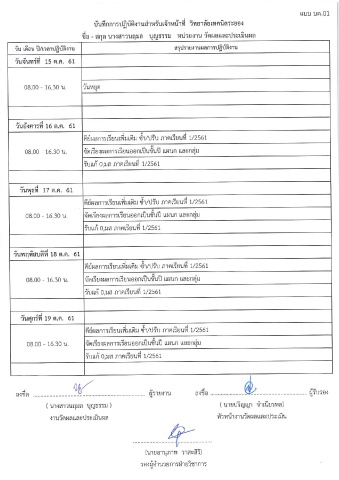 แบบ นค.01
บันทึกการปฏิบัติงานสำหรับเจ้าหน้าที่ วิทยาลัยเทคนิคระยอง
ชื่อ - สกุล นางสาวนฤมล บุญธรรม หน่วยงาน วัดผลและประเมินผล
วัน เดือน ปี/เวลาปฏิบัติงาน สรุปรายงานผลการปฏิบัติงาน
วันจันทร์ที่ 15 ต.ค. 61
08.00 - 16.30 น. วันหยุด
วันอังคารที่ 16 ต.ค. 61
คีย์ผลการเรียนเพิ่มเติม ซ้ำ/ปรับ ภาคเรียนที่ 1/2561
08.00 - 16.30 น. จัดเรียงผลการเรียนออกเป็นชั้นปี แผนก และกลุ่ม
รับแก้ 0,มส ภาคเรียนที่ 1/2561
วันพุธที่ 17 ต.ค. 61
คีย์ผลการเรียนเพิ่มเติม ซ้ำ/ปรับ ภาคเรียนที่ 1/2561
08.00 - 16.30 น. จัดเรียงผลการเรียนออกเป็นชั้นปี แผนก และกลุ่ม
รับแก้ 0,มส ภาคเรียนที่ 1/2561
วันพฤหัสบดีที่ 18 ต.ค. 61
คีย์ผลการเรียนเพิ่มเติม ซ้ำ/ปรับ ภาคเรียนที่ 1/2561
08.00 - 16.30 น. จัดเรียงผลการเรียนออกเป็นชั้นปี แผนก และกลุ่ม
รับแก้ 0,มส ภาคเรียนที่ 1/2561
วันศุกร์ที่ 19 ต.ค. 61
คีย์ผลการเรียนเพิ่มเติม ซ้ำ/ปรับ ภาคเรียนที่ 1/2561
08.00 - 16.30 น. จัดเรียงผลการเรียนออกเป็นชั้นปี แผนก และกลุ่ม
รับแก้ 0,มส ภาคเรียนที่ 1/2561
ลงชื่อ ผู้รายงาน ลงชื่อ ผู้รับรอง
( นางสาวนฤมล บุญธรรม )
งานวัดผลและประเมินผล หัวหน้างานวัดผลและประเมิน
รองผู้อำนวยการฝ่ายวิชาการ